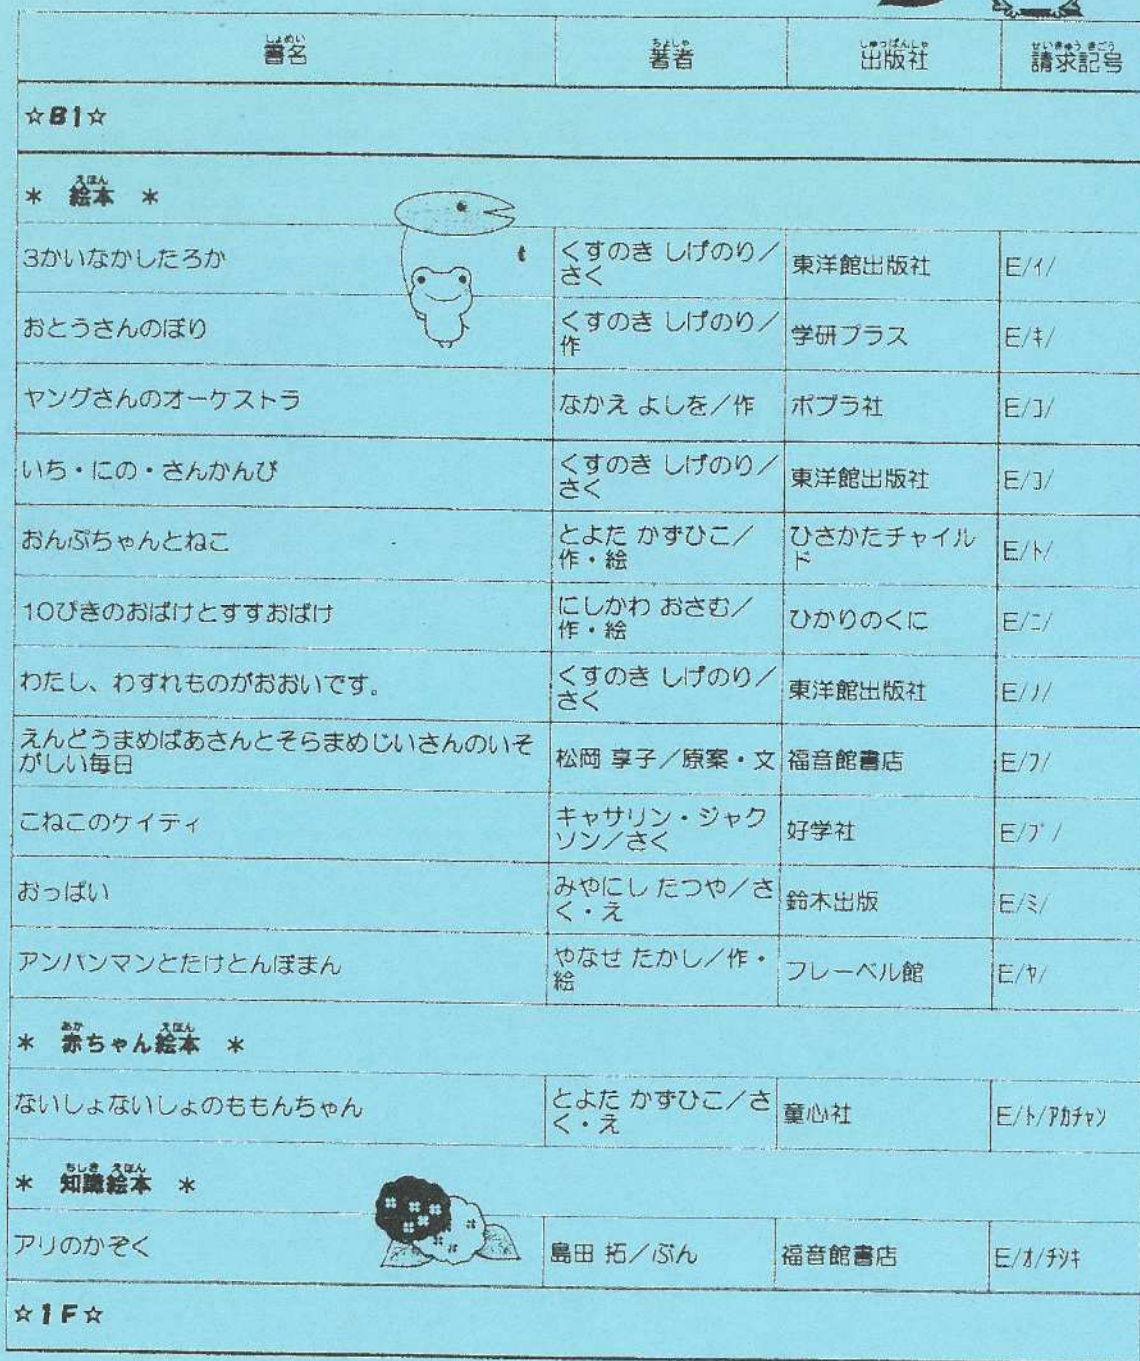 しょめい ちょしゃ しゅっぱんしゃ せいきゅう きごう
書名 著者 出版社 請求記号
☆B1☆
えほん
* 絵本 *
3かいなかしたろか くすのき しげのり/さく 東洋館出版社 E/イ/
おとうさんのぼり くすのき しげのり/作 学研プラス E/キ/
ヤングさんのオーケストラ なかえ よしを/作 ポプラ社 E/コ/
いち・にの・さんかんび くすのき しげのり/さく 東洋館出版社 E/コ/
おんぷちゃんとねこ とよた かずひこ/作・絵 ひさかたチャイルド E/ト/
10ぴきのおばけとすすおばけ にしかわ おさむ/作・絵 ひかりのくに E/ニ/
わたし、わすれものがおおいです。 くすのき しげのり/さく 東洋館出版社 E/ノ/
えんどうまめばあさんとそらまめじいさんのいそがしい毎日 松岡 享子/原案・文 福音館書店 E/フ/
こねこのケイティ キャサリン・ジャクソン/さく 好学社 E/プ/
おっぱい みやにし たつや/さく・え 鈴木出版 E/ミ/
アンパンマンとたけとんぼまん やなせ たかし/作・絵 フレーベル館 E/ヤ/
あか えほん
* 赤ちゃん絵本 *
ないしょないしょのももんちゃん とよた かずひこ/さく・え 童心社 E/ト/アカチャン
ちしき えほん
* 知識絵本 *
アリのかぞく 島田 拓/ぶん 福音館書店 E/オ/チシキ
☆1F☆